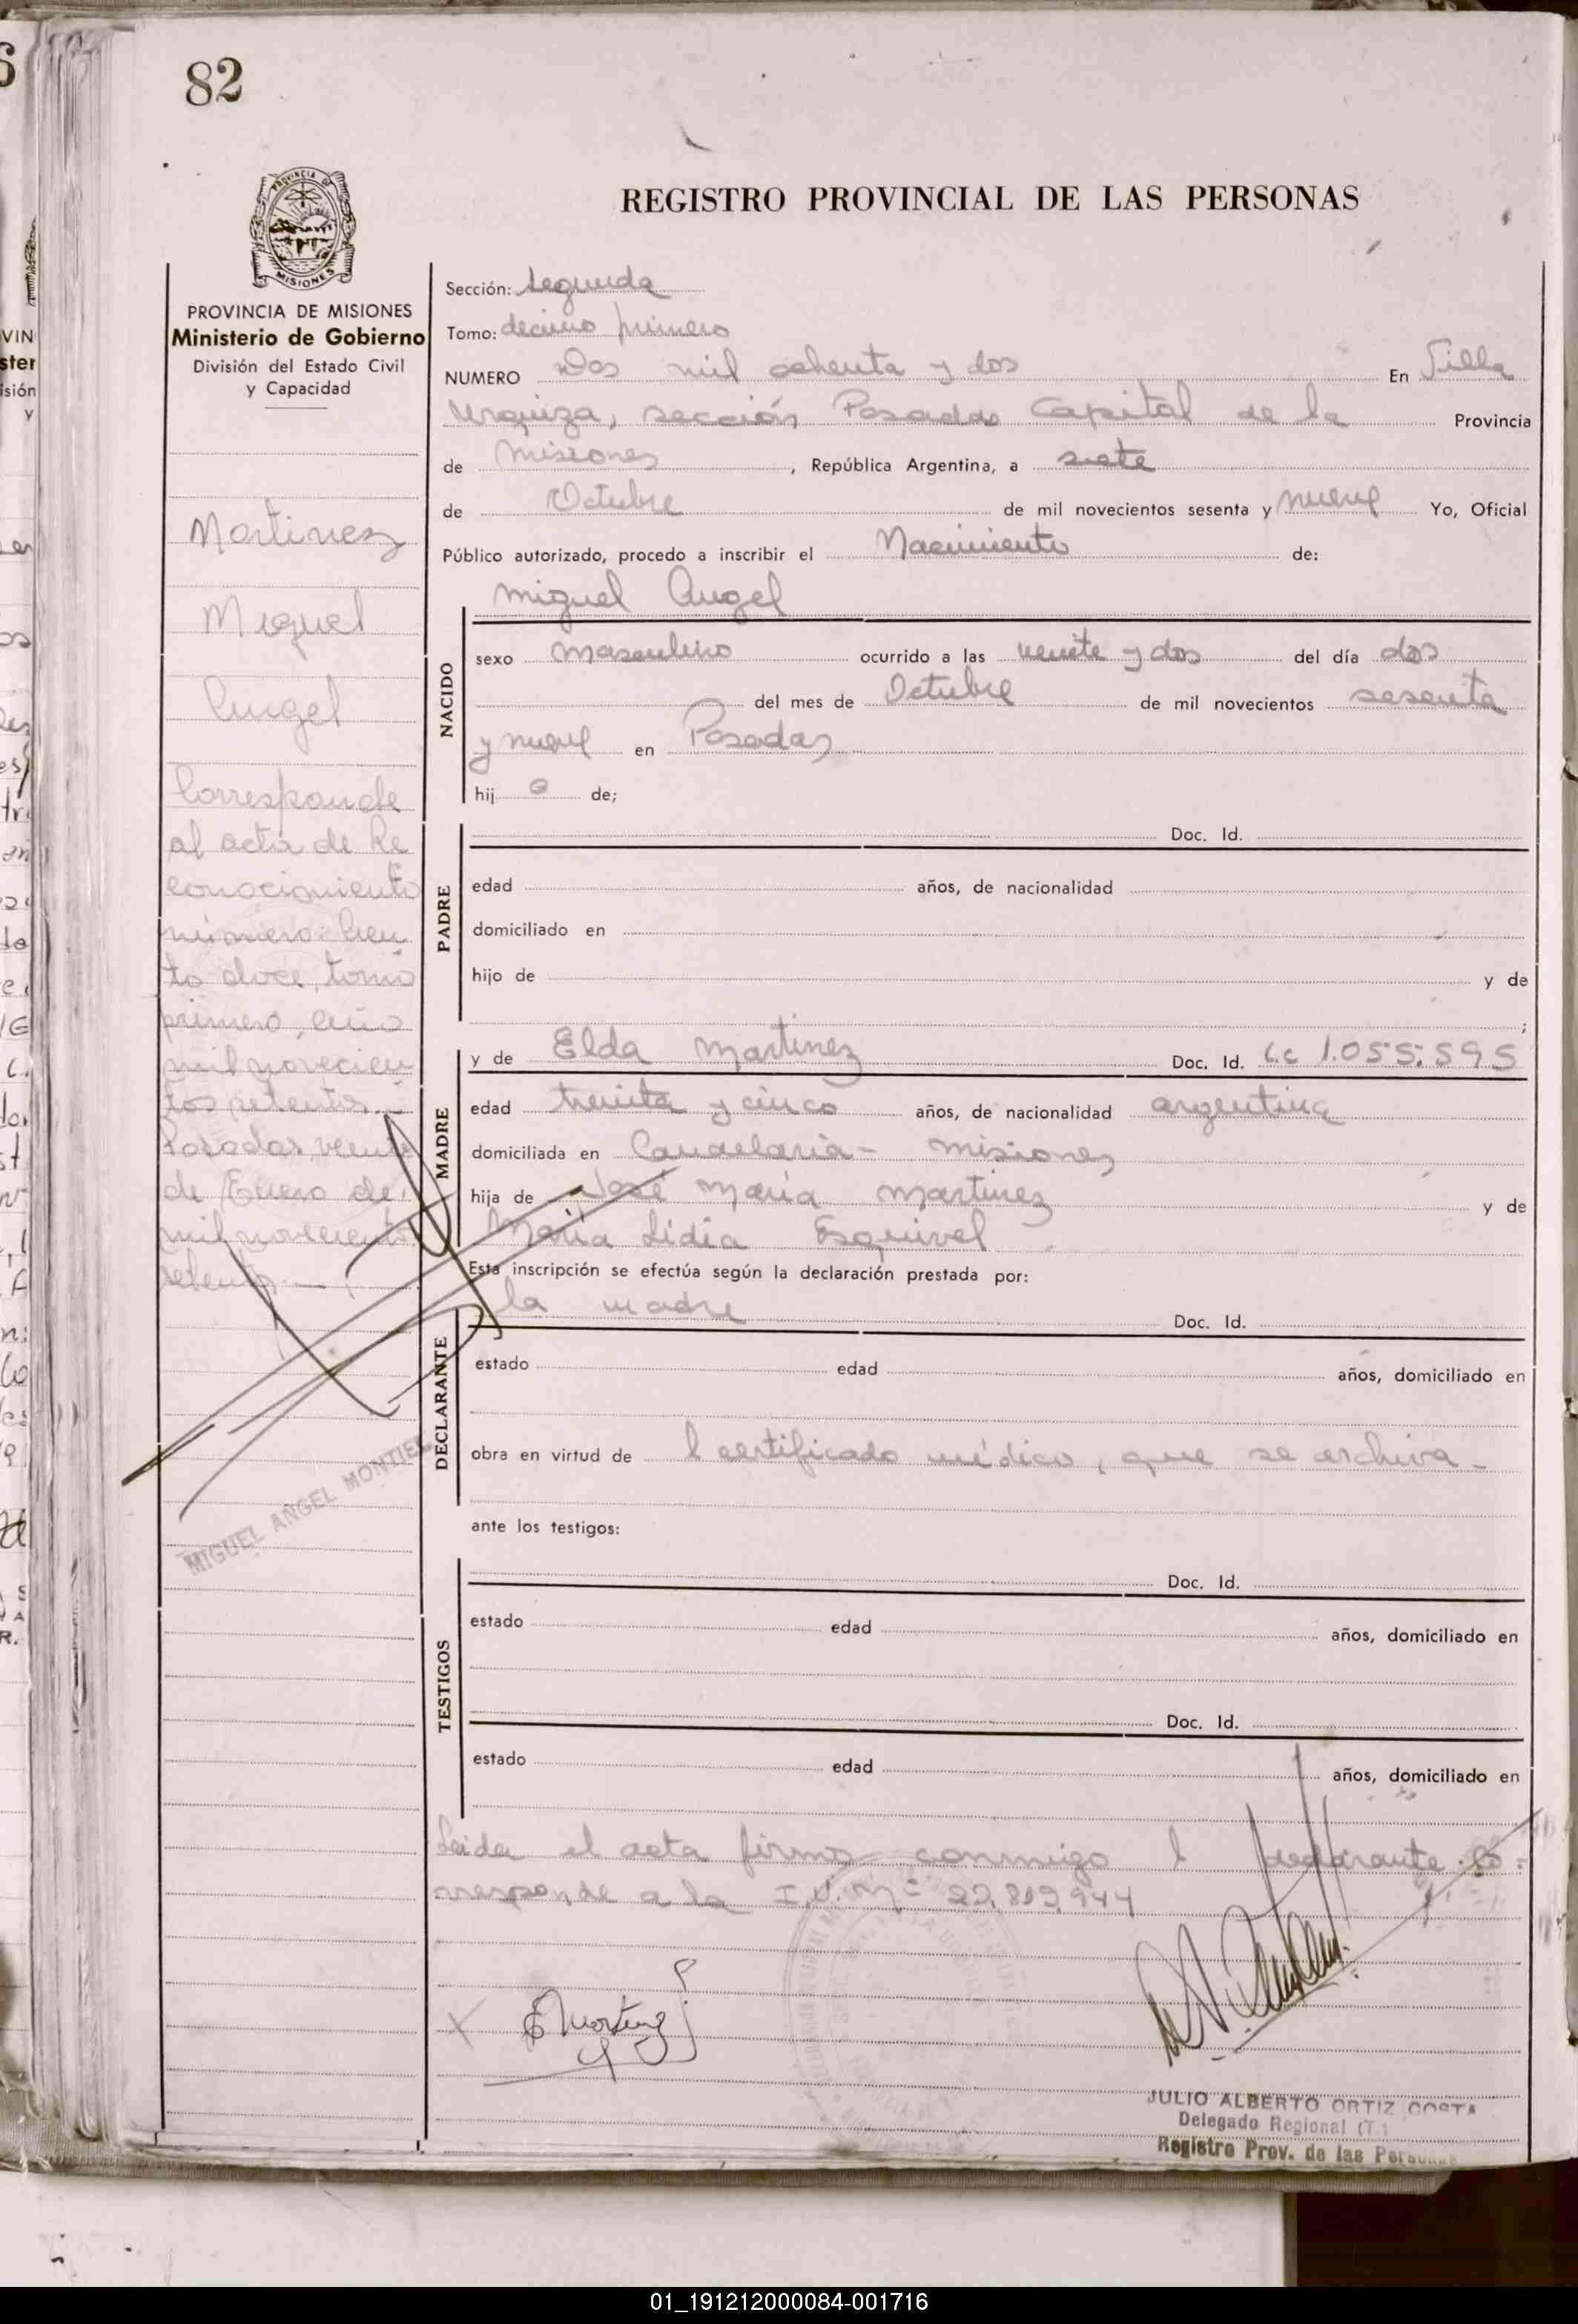 82
REGISTRO PROVINCIAL DE LAS PERSONAS
PROVINCIA DE MISIONES
Ministerio de Gobierno
División del Estado Civil
y Capacidad
Martinez
Miguel
Angel
Corresponde
al acta de Re
conocimiento
número: Cien
to doce, tomo
primero, año
mil novecien
tos setenta.—
Posadas, veinte
de Enero de
mil novecientos
setenta.—
MIGUEL ANGEL MONTIEL
Sección: Segunda
Tomo: decimo primero
NUMERO Dos mil ochenta y dos En Villa
Urquiza, sección Posadas Capital de la Provincia
de Misiones, República Argentina, a siete
de Octubre de mil novecientos sesenta y nueve Yo, Oficial
Público autorizado, procedo a inscribir el Nacimiento de:
Miguel Angel
NACIDO
sexo masculino ocurrido a las veinte y dos del día dos
del mes de Octubre de mil novecientos sesenta
y nueve en Posadas
hij o de;
PADRE
Doc. Id.
edad años, de nacionalidad
domiciliado en
hijo de y de
;
MADRE
y de Elda Martinez Doc. Id. L.c 1.055.595
edad treinta y cinco años, de nacionalidad argentina
domiciliada en Candelaria - Misiones
hija de José María Martinez y de
María Lidia Esquivel
Esta inscripción se efectúa según la declaración prestada por:
la madre Doc. Id.
DECLARANTE
estado edad años, domiciliado en
obra en virtud de l certificado médico, que se archiva-
ante los testigos:
TESTIGOS
Doc. Id.
estado edad años, domiciliado en
Doc. Id.
estado edad años, domiciliado en
Leida el acta firma conmigo l declarante. Co-
rresponde a la I.U. Nº 22,812,944
E Martinez
JULIO ALBERTO ORTIZ COSTA
Delegado Regional (T.)
Registro Prov. de las Personas
01_191212000084-001716